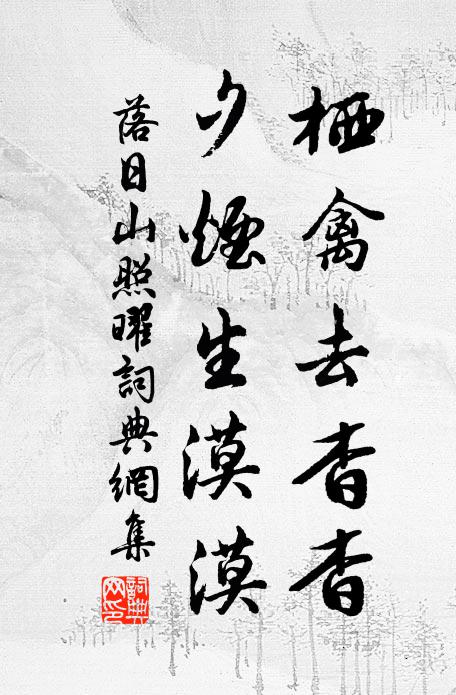 栖禽去杳杳
夕煙生漠漠
落日山照曜詞典網集